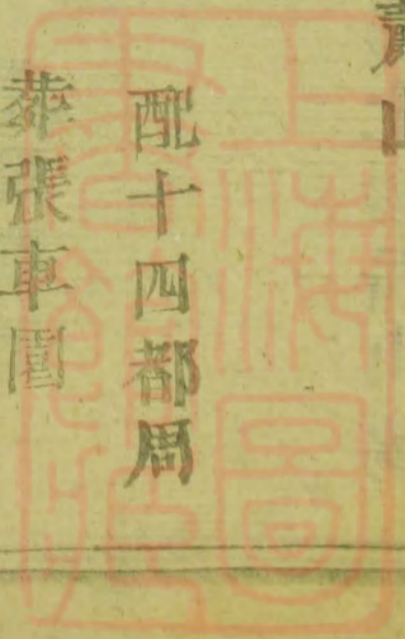 配十四都周
葬張車園
上海圖書館藏